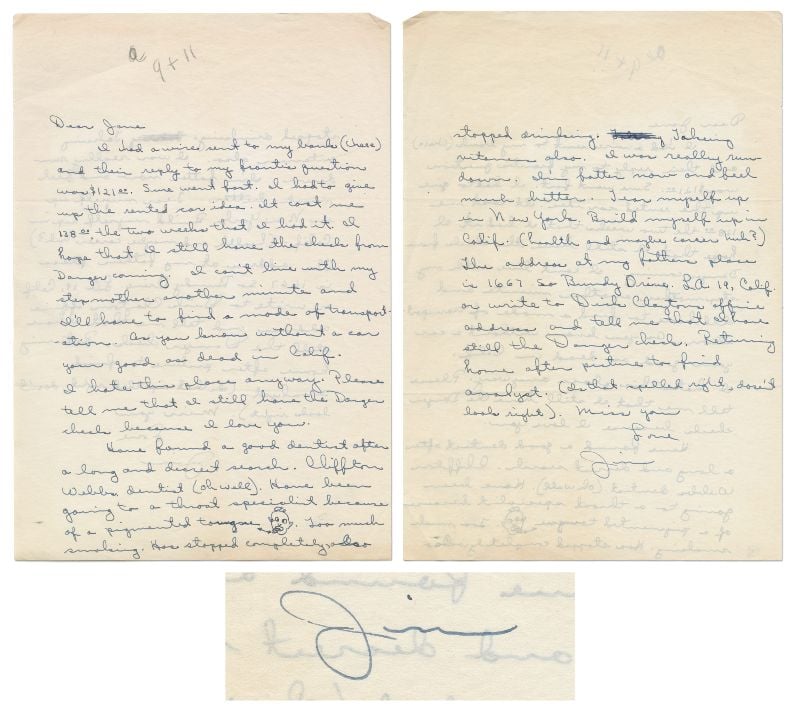 a
9 + 11
Dear Jane
I had a wire sent to my bank (Chase)
and their reply to my frantic question
was $121.00. Sure went fast. I had to give
up the rented car idea. It cost me
138.00 the two weeks that I had it. I
hope that I still have the check from
Danger coming. I can't live with my
stepmother another minute and
I'll have to find a mode of transport-
ation. As you know without a car
your good as dead in Calif.
I hate this place anyway. Please
tell me that I still have the Danger
check because I love you.
Have found a good dentist after
a long and decred search. Cliffton
Webbs dentist (oh well). Have been
going to a throat specialist because
of a pigmented toungue. Too much
smoking. Has stopped completely, also
stopped drinking. Takeing
vitamens also. I was really run
down. I'm fatter now and feel
much better. Tear myself up
in New York. Build myself up in
Calif. (health and maybe career huh?)
The address at my fathers place
is 1667 So Bundy Drive. LA 19, Calif.
or write to Dick Clayton office
address and tell me that I have
still the Danger cheik. Returning
home after picture to find
analyst. (Is that spelled right, dosen't
look right). Miss you
Love
Jim
Jim